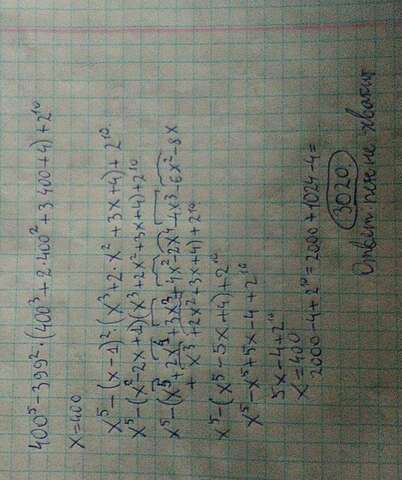 400⁵-399²·(400³+2·400²+3·400+4)+2¹⁰
x=400
x⁵-(x-1)²·(x³+2·x²+3x+4)+2¹⁰
x⁵-(x²-2x+1)(x³+2x²+3x+4)+2¹⁰
x⁵-(x⁵+2x⁴+3x³+4x²-2x⁴-4x³-6x²-8x
+x³+2x²+3x+4)+2¹⁰
x⁵-(x⁵-5x+4)+2¹⁰
x⁵-x⁵+5x-4+2¹⁰
5x-4+2¹⁰
x=400
2000-4+2¹⁰=2000+1024-4=
3020
Ответ